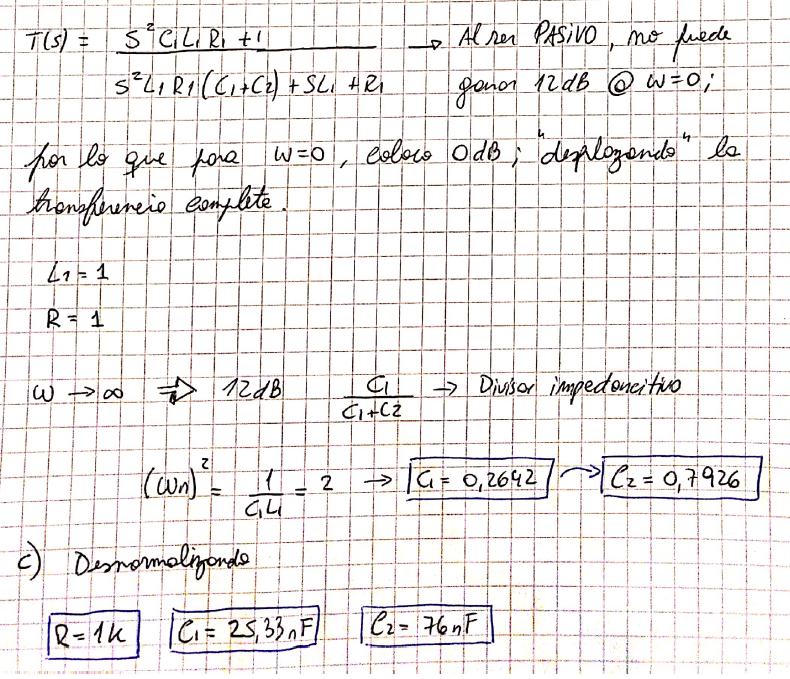 T(s) = (S²C₁L₁R₁ + 1) / (S²L₁R1(C₁+C₂) + SL₁ + R₁) → Al ser PASIVO, no puede
ganar 12dB @ ω=0;
por lo que para ω=0, coloco 0dB; "desplazando" la
transferencia completa.
L1 = 1
R = 1
ω → ∞ ⇒ 12dB C₁/(C₁+C2) → Divisor impedancitivo
(ωn)² = 1/(C₁L₁) = 2 → C₁ = 0,2642 → C₂ = 0,7926
c) Desnormalizando
R = 1K C₁ = 25,33nF C₂ = 76nF